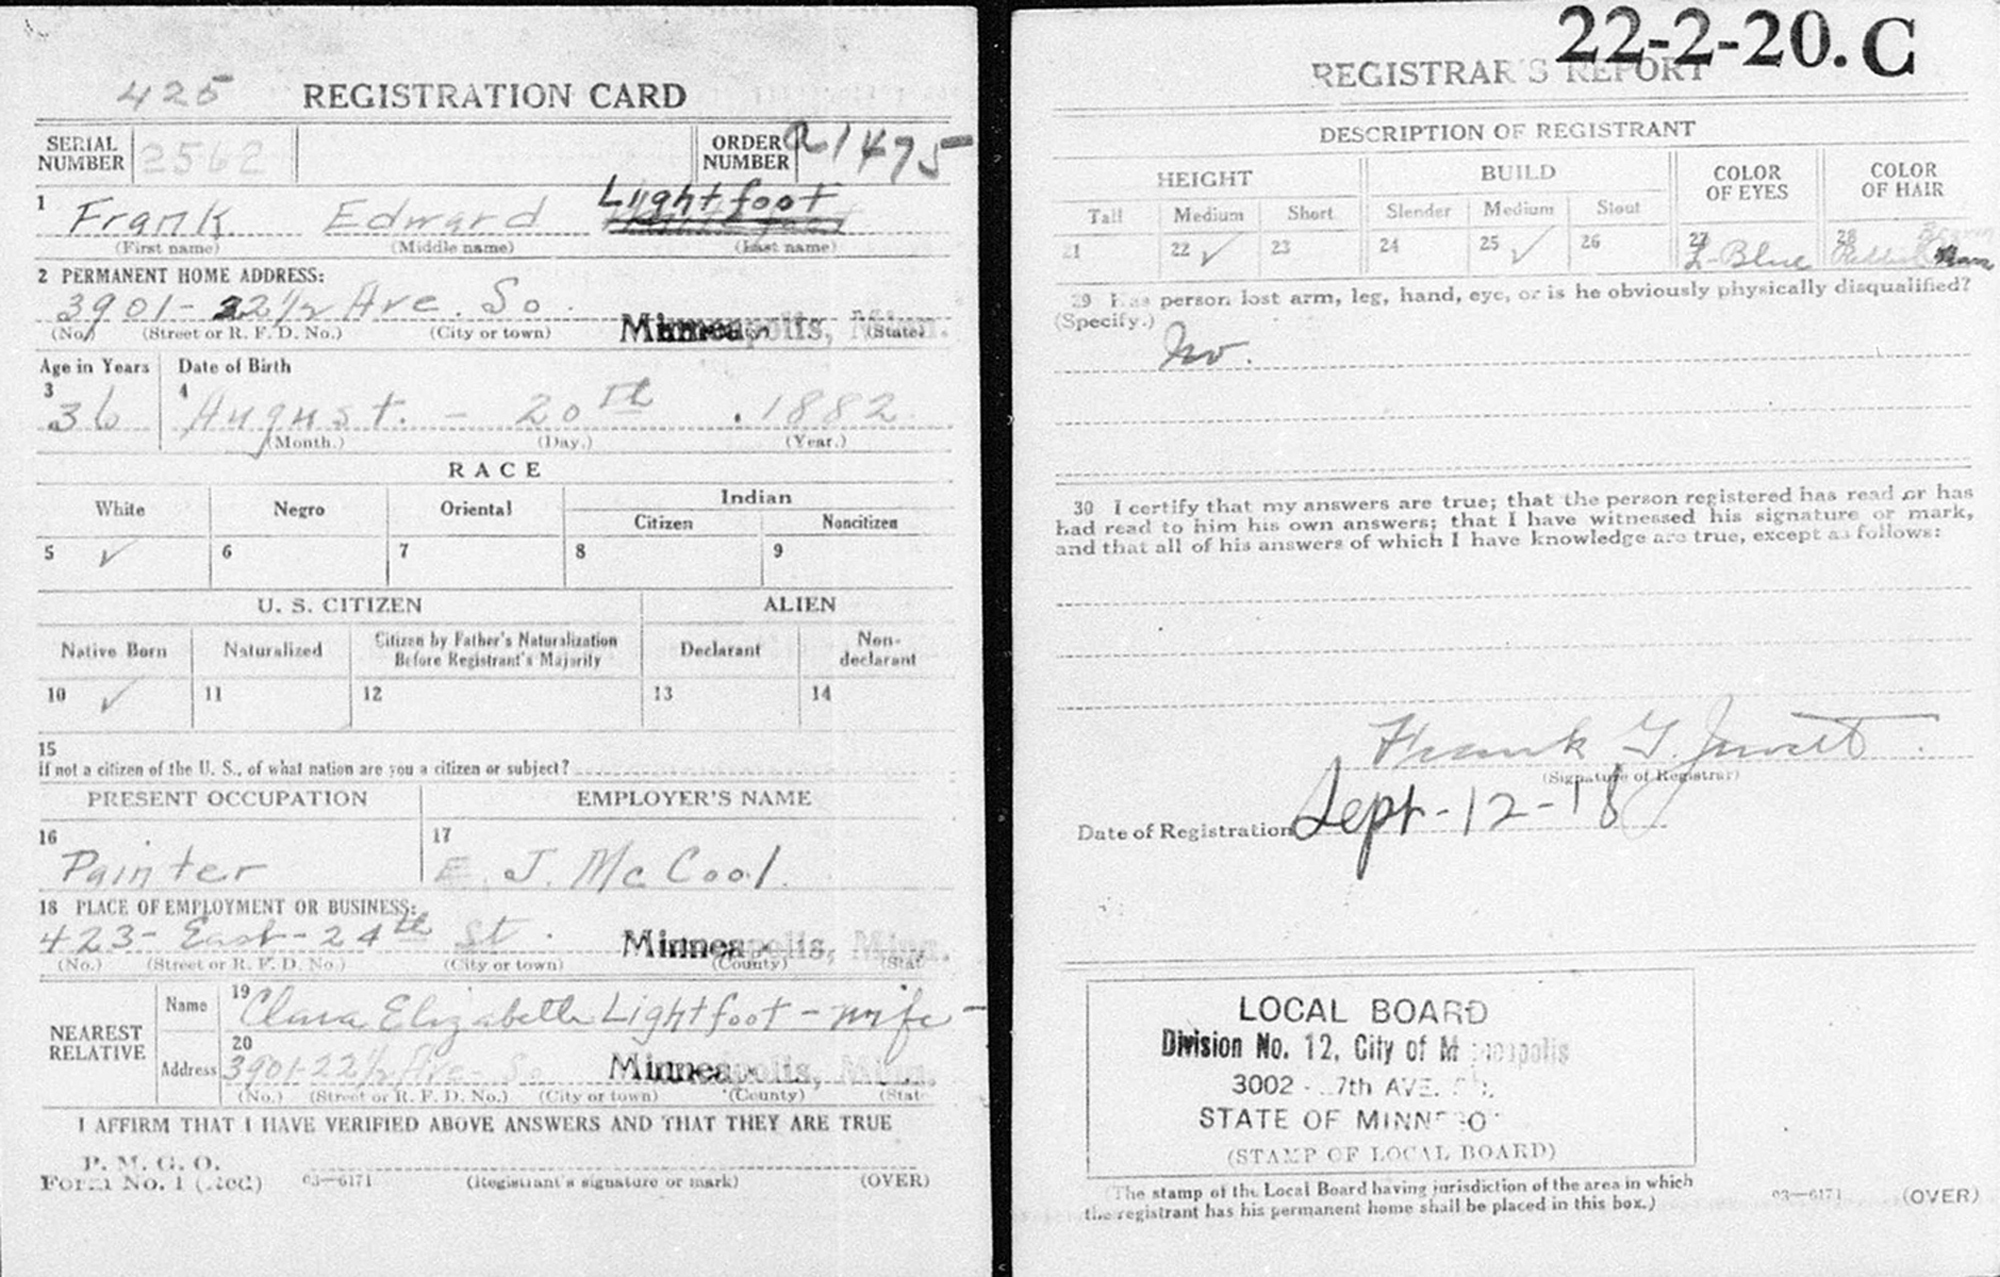 425 REGISTRATION CARD
SERIAL NUMBER 2562 ORDER NUMBER A1475
1 Frank Edward Lightfoot
(First name) (Middle name) (Last name)
2 PERMANENT HOME ADDRESS:
3901- 22½ Ave. So. Minneapolis, Minn.
(No.) (Street or R. F. D. No.) (City or town) (State)
Age in Years Date of Birth
3 36 4 August. - 20th 1882
(Month.) (Day.) (Year.)
RACE
White Negro Oriental Indian
Citizen Noncitizen
5 ✓ 6 7 8 9
U. S. CITIZEN ALIEN
Native Born Naturalized Citizen by Father's Naturalization Before Registrant's Majority Declarant Non-declarant
10 ✓ 11 12 13 14
15
If not a citizen of the U. S., of what nation are you a citizen or subject?
PRESENT OCCUPATION EMPLOYER'S NAME
16 Painter 17 E. J. McCool.
18 PLACE OF EMPLOYMENT OR BUSINESS:
423- East- 24th St. Minneapolis, Minn.
(No.) (Street or R. F. D. No.) (City or town) (County) (State)
NEAREST RELATIVE Name 19 Clara Elizabeth Lightfoot - wife -
Address 20 3901-22½ Ave- So Minneapolis, Minn.
(No.) (Street or R. F. D. No.) (City or town) (County) (State
I AFFIRM THAT I HAVE VERIFIED ABOVE ANSWERS AND THAT THEY ARE TRUE
P. M. G. O.
Form No. 1 (Red) 03—6171 (Registrant's signature or mark) (OVER)
22-2-20. C
REGISTRAR'S REPORT
DESCRIPTION OF REGISTRANT
HEIGHT BUILD COLOR OF EYES COLOR OF HAIR
Tall Medium Short Slender Medium Stout
21 22 ✓ 23 24 25 ✓ 26 27 L-Blue 28 Brown
29 Has person lost arm, leg, hand, eye, or is he obviously physically disqualified?
(Specify.)
No.
30 I certify that my answers are true; that the person registered has read or has
had read to him his own answers; that I have witnessed his signature or mark,
and that all of his answers of which I have knowledge are true, except as follows:
Frank G. Jewett
(Signature of Registrar)
Date of Registration Sept-12-18
LOCAL BOARD
Division No. 12, City of Minneapolis
3002 - 7th AVE.
STATE OF MINNESO
(STAMP OF LOCAL BOARD)
(The stamp of the Local Board having jurisdiction of the area in which
the registrant has his permanent home shall be placed in this box.)
03—6171 (OVER)